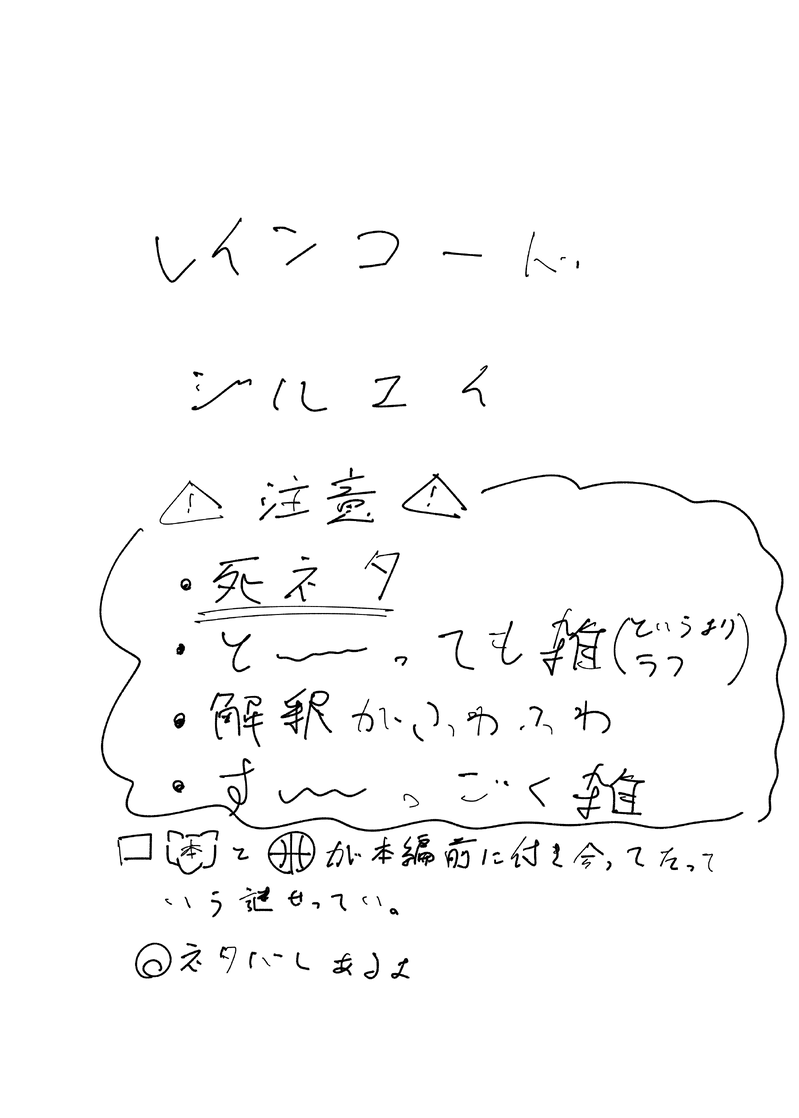 レインコード
ジルエイ
⚠ 注意 ⚠
・死ネタ
・と〜〜っても雑(というよりラフ)
・解釈がふわふわ
・す〜〜っごく雑
本 と が本編前に付き合ってたって
いう謎せってい。
ネタバレあるよ